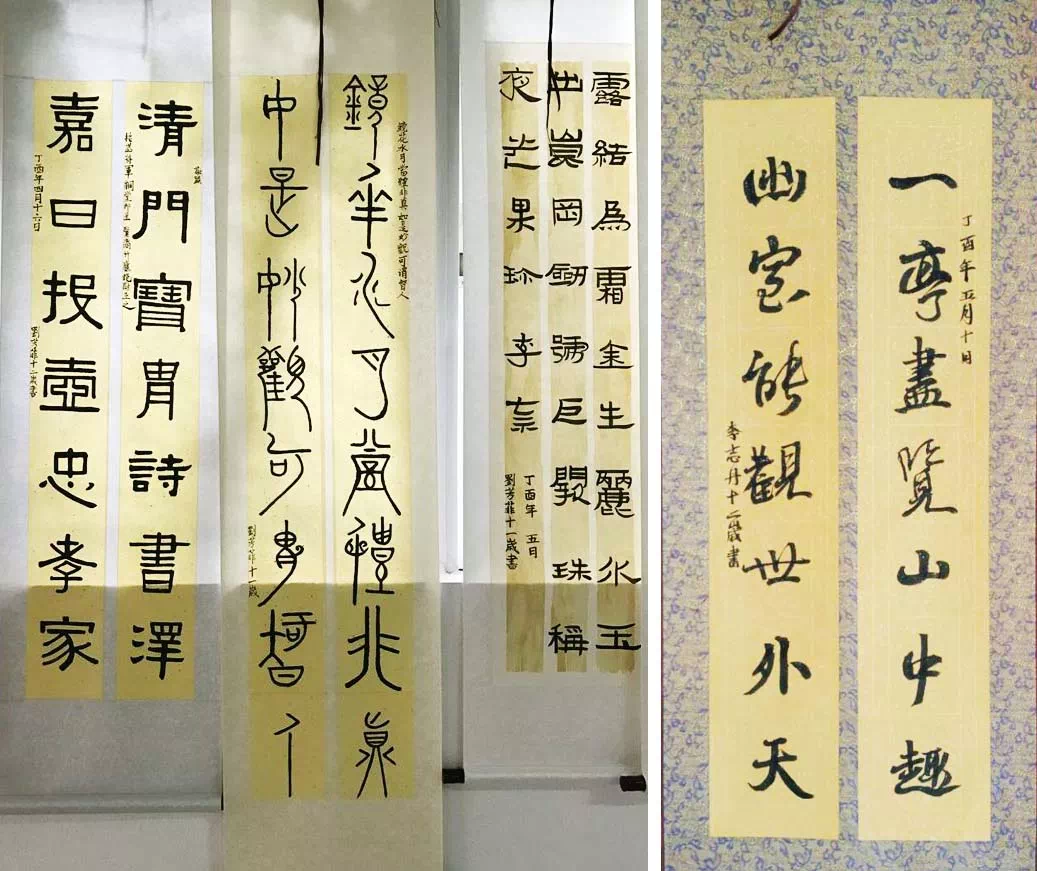 清門寶胄詩書澤
嘉曰报壺忠孝家
丁酉年四月十六日
劉芳菲十二歲書
鏡花水月當體非真如是妙觀可謂智人
鏡花水月當體非真
如是妙觀可胃智人
劉芳菲十一歲
露結為霜金生麗水玉
出崑岡劒號巨闕珠稱
夜光果珍李柰
丁酉年五月
劉芳菲十一歲書
一亭盡覽山中趣
丁酉年五月十日
幽室能觀世外天
李志丹十二歲書